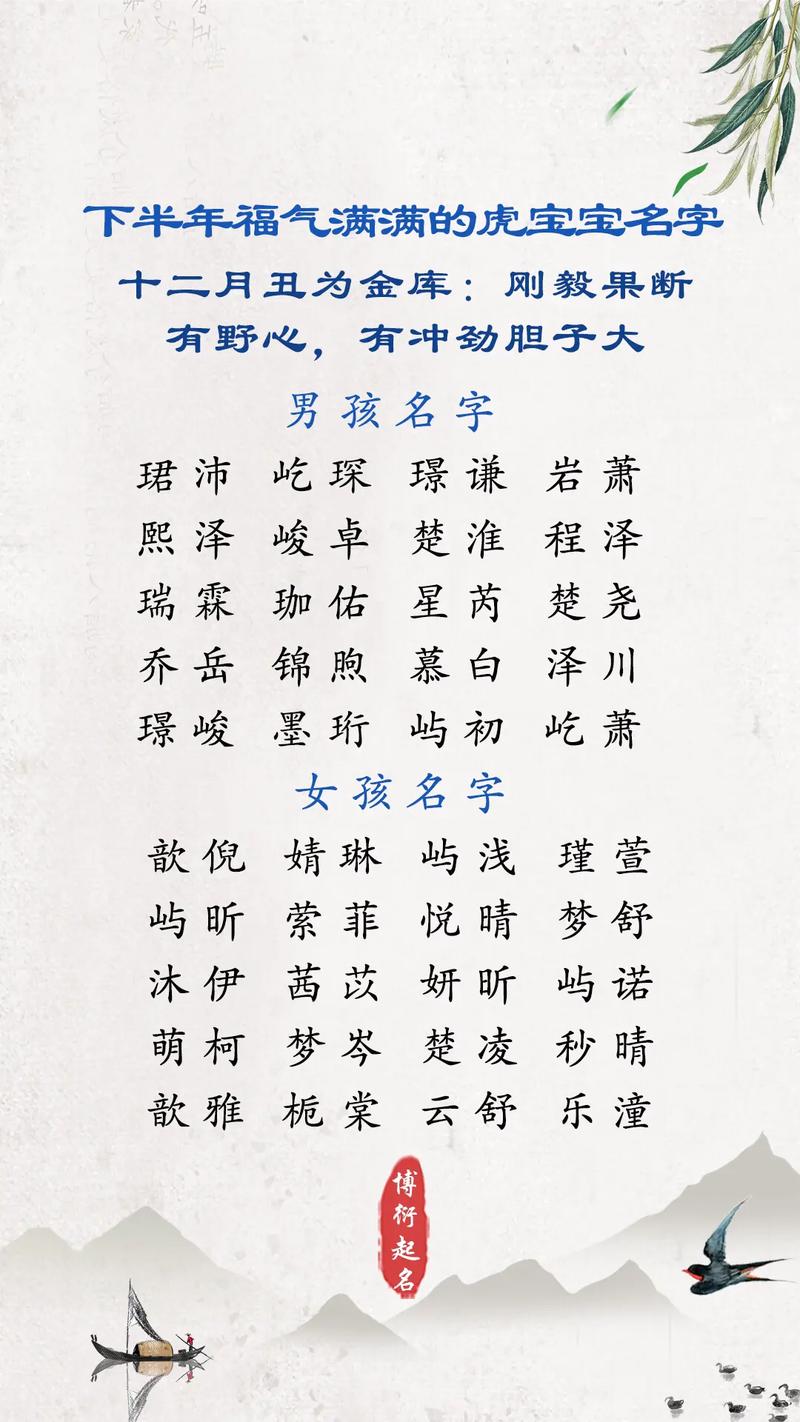 下半年福气满满的虎宝宝名字
十二月丑为金库：刚毅果断
有野心，有冲劲胆子大
男孩名字
珺沛 屹琛 璟谦 岩萧
熙泽 峻卓 楚淮 程泽
瑞霖 珈佑 星芮 楚尧
乔岳 锦煦 慕白 泽川
璟峻 墨珩 屿初 屹萧
女孩名字
歆倪 婧琳 屿浅 瑾萱
屿昕 萦菲 悦晴 梦舒
沐伊 茜苡 妍昕 屿诺
萌柯 梦岑 楚凌 秒晴
歆雅 栀棠 云舒 乐潼
博衍起名